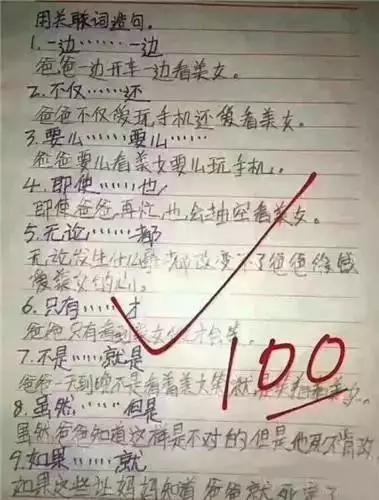 用关联词造句.
1.一边……一边
爸爸一边开车一边看美女。
2.不仅……还
爸爸不仅爱玩手机还爱看美女。
3.要么……要么……
爸爸要么看美女要么玩手机。
4.即使……也
即使爸爸再忙,也会抽空看美女。
5.无论……都
无论发生什么都改变不了爸爸
爱美女的心。
6.只有……才
爸爸只有看到美女 才会笑。
7.不是……就是
爸爸一天到晚不是看着美女笑就是
8.虽然……但是
虽然爸爸知道这样是不对的但是他死不悔改
9.如果……就
如果这些让妈妈知道爸爸就死定了
100